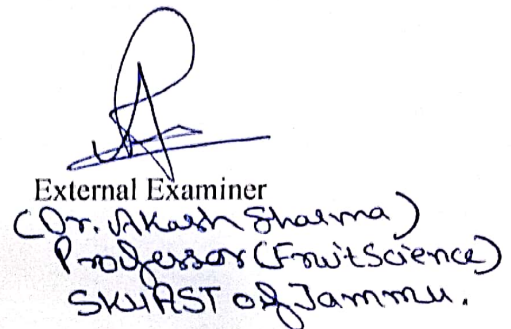 External Examiner
(Dr. Akash Sharma)
Professor (Fruit Science)
SKUAST of Jammu.